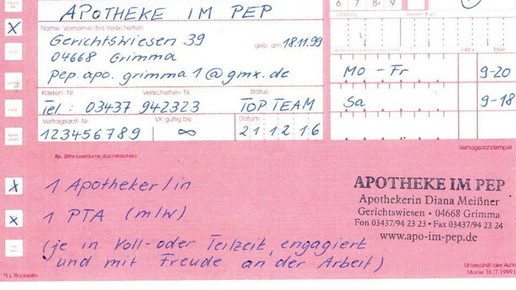 6 7 8 9
APOTHEKE IM PEP
Name, Vorname des Versicherten
Gerichtswiesen 39
geb. am 18.11.99
04668 Grimma
pep.apo.grimma1@gmx.de
Mo - Fr 9-20
Kassen-Nr. Status
Tel: 03437 942323 TOP TEAM
Sa 9-18
Vertragsarzt-Nr. VK gültig bis Datum
123456789 ∞ 21.12.16
Vertragsarztstempel
Rp. (Bitte Leerräume durchstreichen)
x 1 Apotheker/in
x 1 PTA (m/w)
(je in Voll- oder Teilzeit, engagiert
und mit Freude an der Arbeit)
APOTHEKE IM PEP
Apothekerin Diana Meißner
Gerichtswiesen • 04668 Grimma
Fon 03437/94 23 23 • Fax 03437/94 23 24
www.apo-im-pep.de
Unterschrift des Arztes
Muster 16 (7.1999)